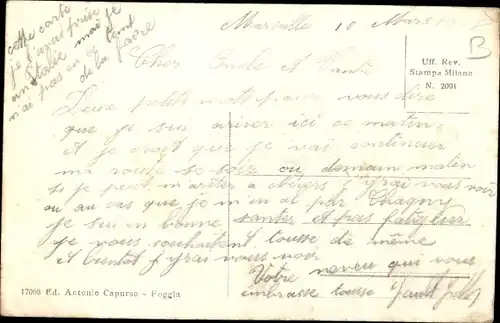 cette carte
je l'avais prise
en Italie mais je
n'ai pas eu le temp
de la faire
Marseille 18 Mars
B
Cher Oncle et Tante
Uff. Rev.
Stampa Milano
N. 2091
Deux petits mots pour vous dire
que je sui ariver ici ce matin
et je croit que je vai continuer
ma route se soir ou demain matin
si je peut m'arrêter a j'irai vous voir
ou au cas que je m'en al par Chagny
je sui en bonne santer et pas fatiguer
je vous souhaitent tousse de même
A bientot j'irai vous voir
Votre neveu qui vous
embrasse tousse
17068 Ed. Antonio Capurso - Foggia